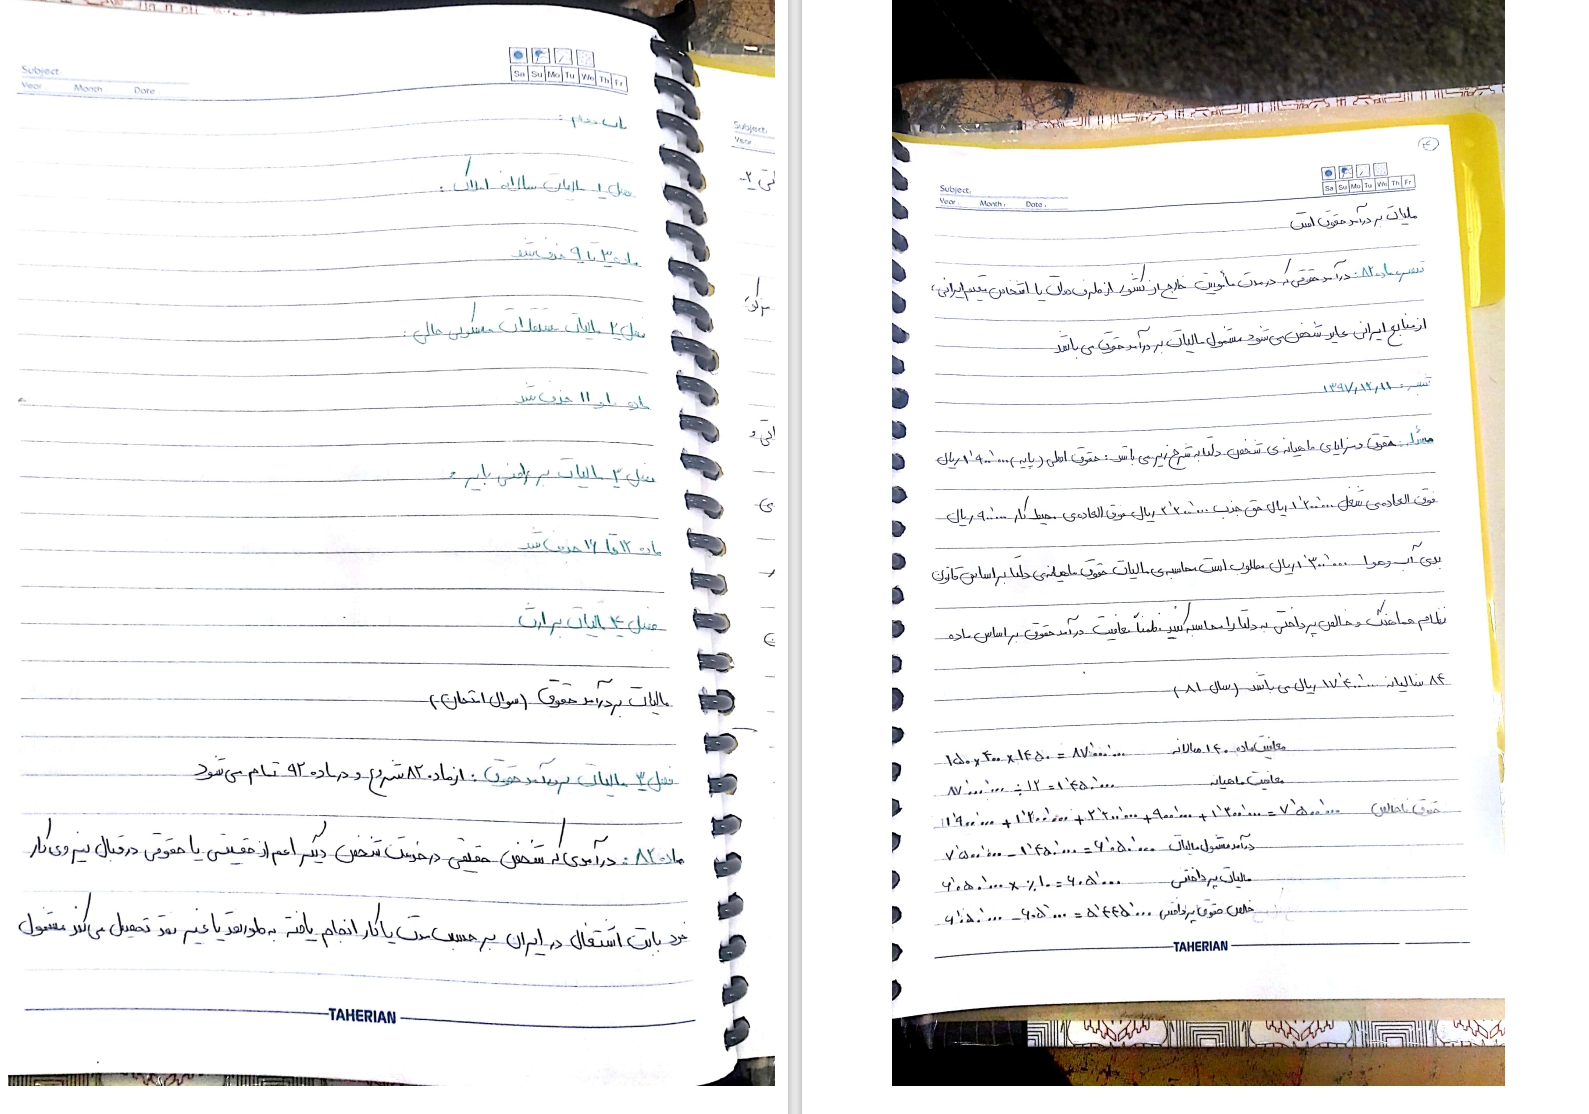 Subject:
Year Month Date
Sa Su Mo Tu We Th Fr
باب دوم :
فصل ۱ مالیات سالانه املاک :
ماده ۳ تا ۹ حذف شد
فصل ۲ مالیات مستغلات مسکونی خالی :
ماده ۱۰ و ۱۱ حذف شد
فصل ۳ مالیات بر اراضی بایر :
ماده ۱۲ تا ۱۶ حذف شد
فصل ۴ مالیات بر ارث
مالیات بر درآمد حقوق (سوال امتحان)
فصل ۳ مالیات بر درآمد حقوق : از ماده ۸۲ شروع و در ماده ۹۲ تمام می شود
ماده ۸۲ : درآمدی که شخص حقیقی در خدمت شخص دیگر اعم از حقیقی یا حقوقی در قبال نیروی کار
خود بابت اشتغال در ایران بر حسب مدت یا کار انجام یافته به طور نقد یا غیر نقد تحصیل می کند مشمول
TAHERIAN
Subject:
Year
Subject:
Year Month: Date:
Sa Su Mo Tu We Th Fr
مالیات بر درآمد حقوق است
تبصره ماده ۸۲ : درآمد حقوقی که در مدت مأموریت خارج از کشور از طرف دولت یا اشخاص مقیم ایرانی،
از منابع ایرانی عاید شخص می شود مشمول مالیات بر درآمد حقوق می باشد
۱۳۹۷,۱۲,۱۱
مسئله : حقوق و مزایای ماهیانه ی شخص دلتا به شرح زیر می باشد : حقوق اصلی (پایه) ۱'۹۰۰'۰۰۰ ریال
فوق العاده ی شغل ۱'۲۰۰'۰۰۰ ریال حق جذب ۲'۲۰۰'۰۰۰ ریال فوق العاده ی محیط کار ۹۰۰'۰۰۰ ریال
بدی آب و هوا ۱'۳۰۰'۰۰۰ ریال مطلوب است محاسبه ی مالیات حقوق ماهیانه ی دلتا بر اساس قانون
نظام هماهنگ و خالص پرداختی به دلتا را محاسبه کنید ضمناً معافیت درآمد حقوق بر اساس ماده
۸۴ سالیانه ۱۷'۴۰۰'۰۰۰ ریال می باشد (سال ۸۱)
معافیت ماده ۱۴۰ سالانه ۱۵۰ × ۴۰۰ × ۱۴۵۰ = ۸۷'۰۰۰'۰۰۰
معافیت ماهیانه ۸۷'۰۰۰'۰۰۰ ÷ ۱۲ = ۱'۴۵۰'۰۰۰
حقوق ناخالص ۱'۹۰۰'۰۰۰ + ۱'۲۰۰'۰۰۰ + ۲'۲۰۰'۰۰۰ + ۹۰۰'۰۰۰ + ۱'۳۰۰'۰۰۰ = ۷'۵۰۰'۰۰۰
درآمد مشمول مالیات ۷'۵۰۰'۰۰۰ - ۱'۴۵۰'۰۰۰ = ۶'۰۵۰'۰۰۰
مالیات پرداختی ۶'۰۵۰'۰۰۰ × ٪۱۰ = ۶۰۵'۰۰۰
خالص حقوق پرداختی ۶'۰۵۰'۰۰۰ - ۶۰۵'۰۰۰ = ۵'۴۴۵'۰۰۰
TAHERIAN